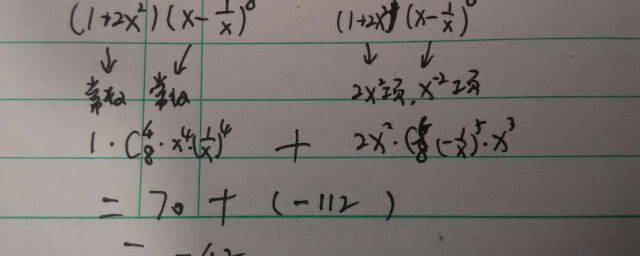 (1+2x²)(x-1/x)⁸ (1+2x²)(x-1/x)⁸
↓ ↓ ↓ ↓
常数 常数 2x²项, x⁻²项
1·C₈⁴·x⁴·(1/x)⁴ + 2x²·C₈⁵(-1/x)⁵·x³
= 70 + (-112)
= -42